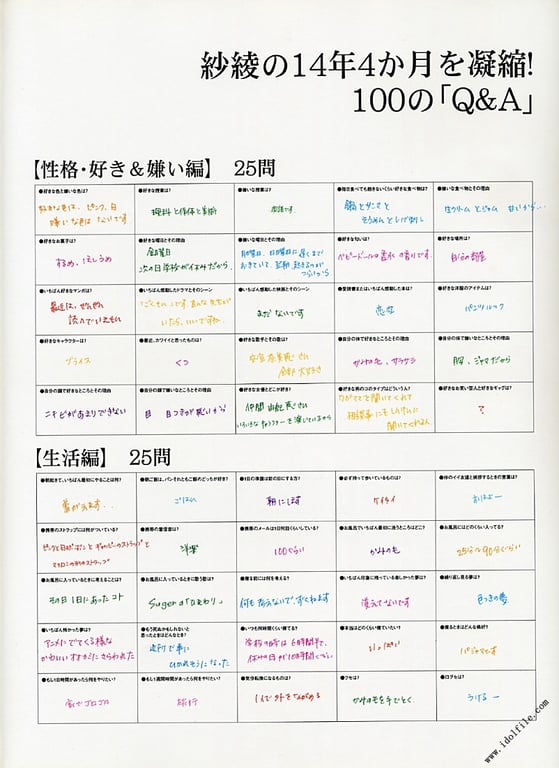 紗綾の14年4か月を凝縮!
100の「Q&A」
【性格・好き&嫌い編】 25問
●好きな色と嫌いな色は?
好きな色は、ピンク、白
嫌いな色は ないです
●好きな授業は?
理科と体体と美術
●嫌いな授業は?
●毎日食べても飽きないくらい好きな食べ物は?
●嫌いな食べ物とその理由
生クリームとジャム 甘いから…
●好きなお菓子は?
するめ、ほしうめ
●好きな曜日とその理由
金曜日
次の日学校が休みだから
●嫌いな曜日とその理由
●好きな匂いは?
ベビードールの香水の香りです
●好きな場所は?
自分の部屋
●いちばん好きなマンガは?
最近は、ぜんぜん
読んでいません
●いちばん感動したドラマとそのシーン
「ごくせん」です。あんな先生が
いたら、いいですね。
●いちばん感動した映画とそのシーン
まだないです
恋空
●好きな洋服のアイテムは?
パンツルック
●好きなキャラクターは?
プライス
●最近、カワイイと思ったものは?
くつ
●好きな歌手とその曲は?
安室奈美恵さん
全部大好き
●自分の体で好きなところとその理由
かみの毛、サラサラ
●自分の体で嫌いなところとその理由
胸、ジャマだから
●自分の顔で好きなところとその理由
ニキビがあまりできない
●自分の顔で嫌いなところとその理由
目 目つきが悪いから
●好きな女優とどこが好き?
仲間由紀恵さん
いろいろなキャラクターを演じているから
●好きな男のコのタイプはどういう人?
●好きなお笑い芸人と好きなギャグは?
?
【生活編】 25問
●朝起きて、いちばん最初にやることは何?
●朝ご飯は、パン それともご飯のどっちが好き?
ごはん
●1日の準備は前の日にする方?
朝にします
●必ず持って歩いているものは?
ケイタイ
●仲のイイ友達と挨拶するときの言葉は?
おはよー
●携帯のストラップには何がついている?
●携帯の着信音は?
洋楽
●携帯のメールは1日何回くらいしている?
100ぐらい
●お風呂でいちばん最初に洗うところはどこ?
かみの毛
●お風呂にはどのくらい入ってる?
●お風呂に入っているときに考えることは?
その日1日にあったコト
●お風呂に入っているときに歌う歌は?
Sugarの「ひまわり」
●寝る前には何を考える?
何も考えないで、すぐねます
●いちばん印象に残っている楽しかった夢は?
覚えてないです
●繰り返し見る夢は?
●いちばん怖かった夢は?
アニメにでてくる様な
かわいいオオカミにおそわれた
●もう死ぬかもしれないと
思ったときはどんなとき?
逆行で車に
ひかれそうになった
●いつも何時間くらい寝てる?
学校の日は6時間半で、
休みの日が10時間ぐらい
●本当はどのくらい寝ていたい?
いっぱい
●寝るときはどんな格好?
パジャマです
●もし1日時間があったら何をやりたい?
家でゴロゴロ
●もし1週間時間があったら何をやりたい?
旅行
●気分転換になるものは?
1人で外をながめる
●クセは?
かみのモを手でとく
●口グセは?
うけるー
www.idolfile.com